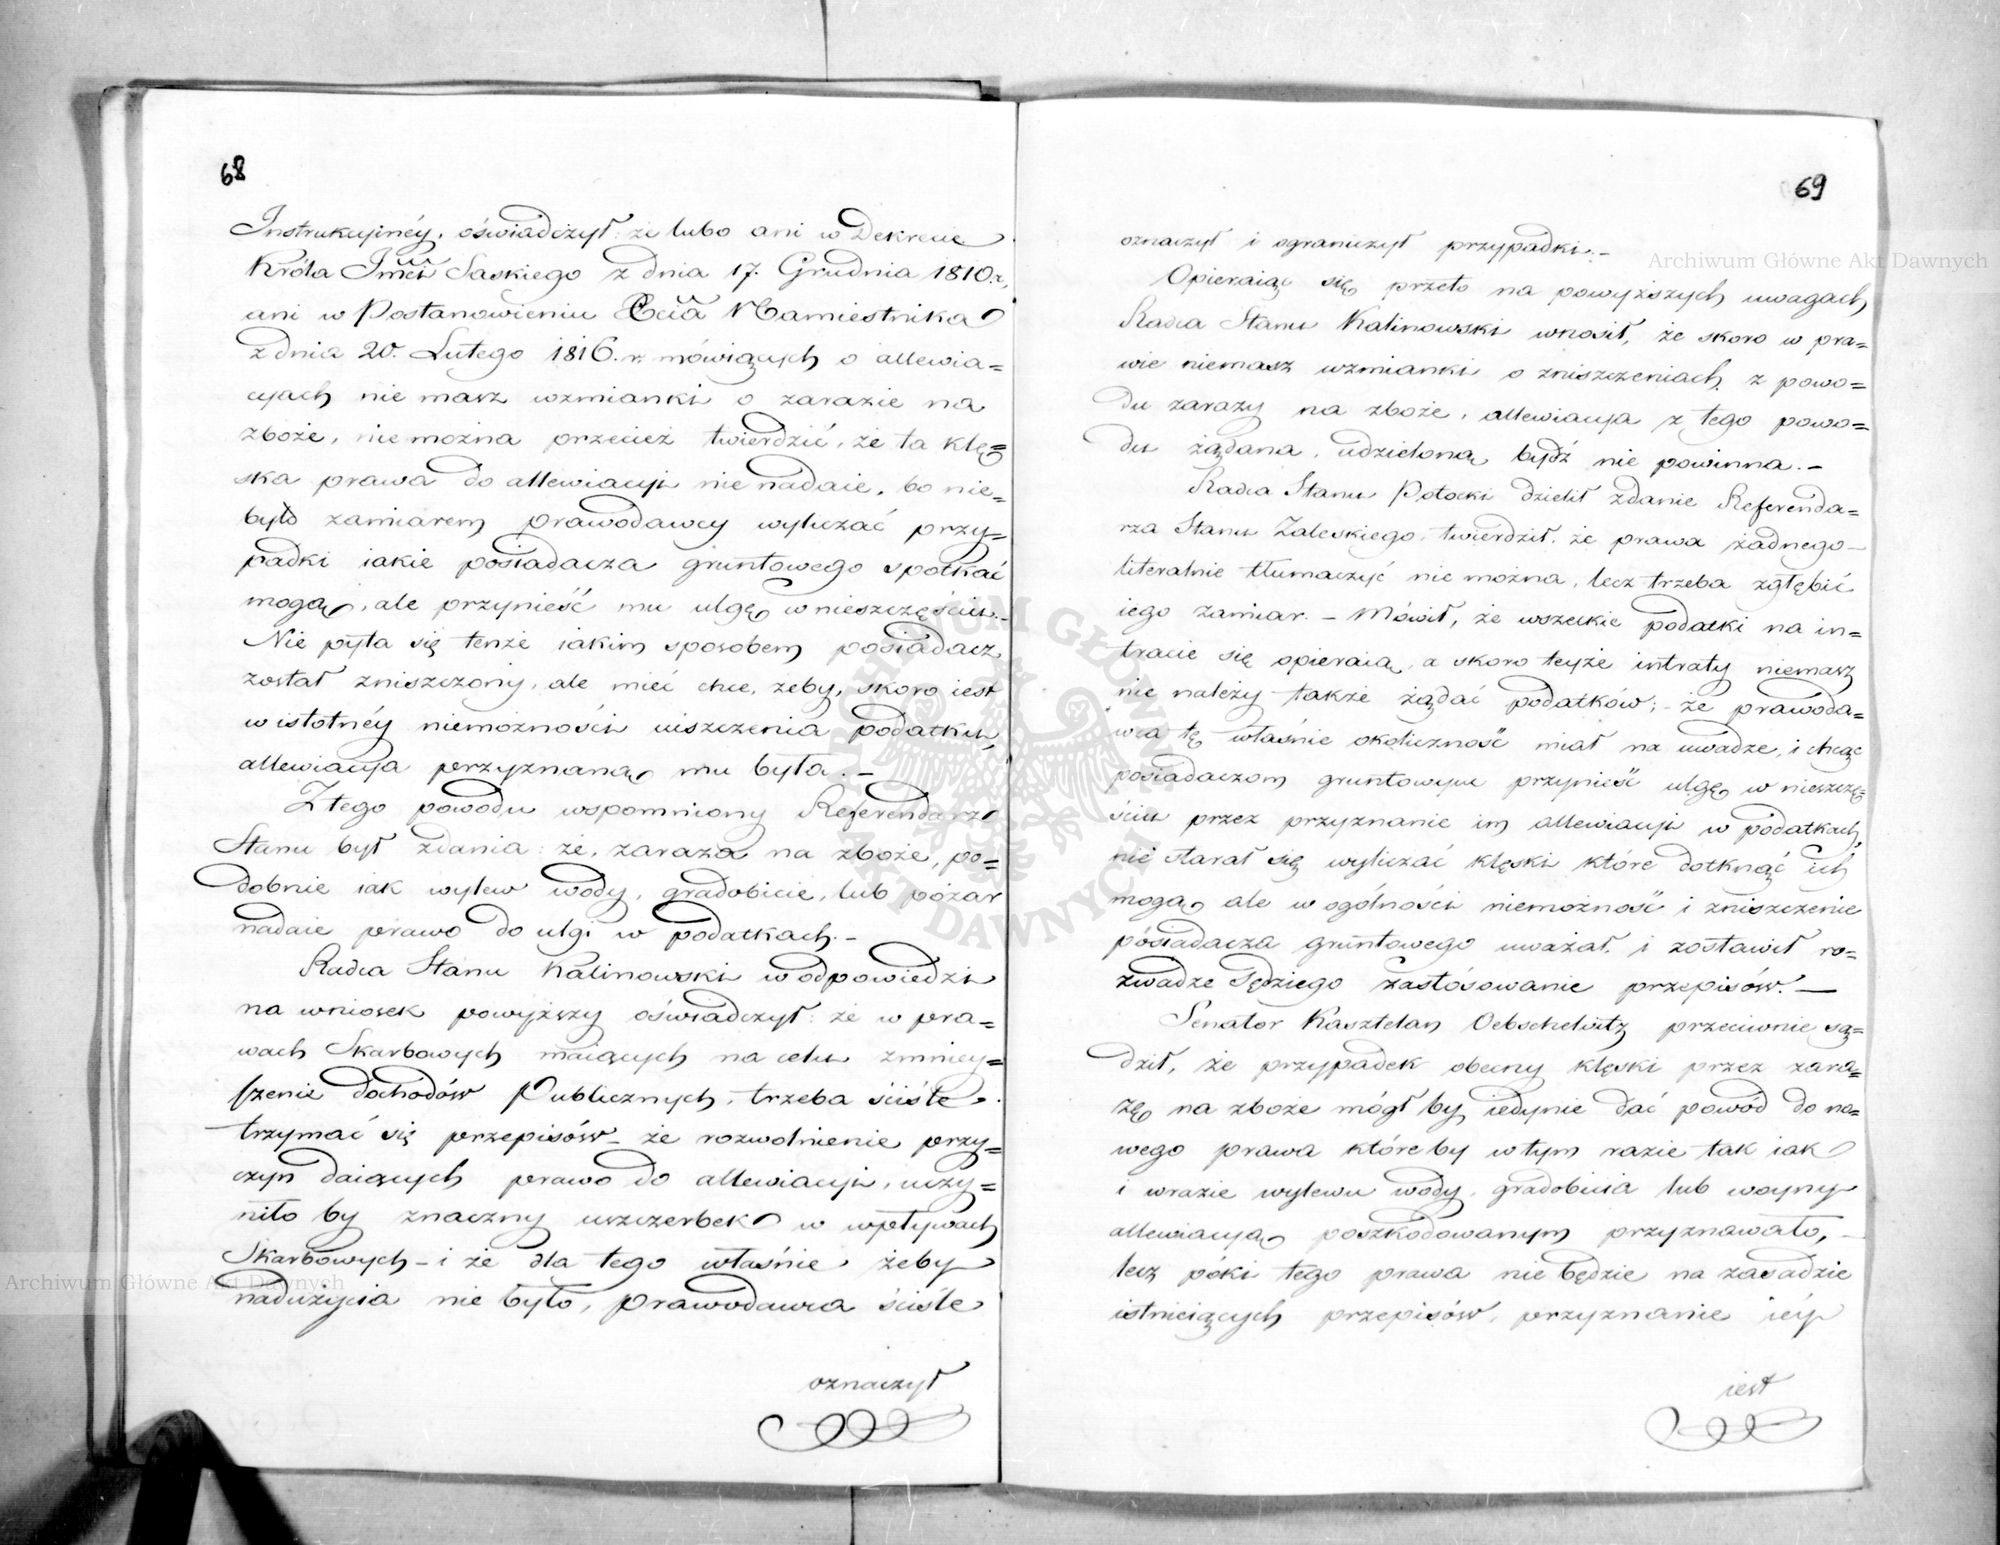 68
Instrukcyinéy, oświadczył: że lubo ani w Dekrecie
Króla Jmći Saskiego z dnia 17. Grudnia 1810. r,
ani w Postanowieniu Xcia Namiestnika
z dnia 20. Lutego 1816. r. mówiących o allewia=
cyach nie masz wzmianki o zarazie na
zboże, nie można przecież twierdzić, że ta klę=
ska prawa do allewiacyi nie nadaie, bo nie=
było zamiarem prawodawcy wyliczać przy=
padki iakie posiadacza gruntowego spotkać
mogą, ale przynieść mu ulgę w nieszczęściu.-
Nie pyta się tenże iakim sposobem posiadacz
został zniszczony, ale mieć chce, żeby, skoro iest
w istotnéy niemożności uiszczenia podatku,
allewiacya przyznaną mu była. -
Z tego powodu wspomniony Referendarz
Stanu był zdania: że, zaraza na zboże, po=
dobnie iak wylew wody, gradobicie, lub pożar
nadaie prawo do ulgi w podatkach. -
Radca Stanu Kalinowski w odpowiedzi
na wniosek powyższy oświadczył: że w pra=
wach Skarbowych maiących na celu zmniey=
szenie dochodów Publicznych, trzeba ściśle
trzymać się przepisów - że rozwolnienie przy=
czyn daiących prawo do allewiacyi, uczy=
niło by znaczny uszczerbek w wpływach
Skarbowych - i że dla tego właśnie żeby
nadużycia nie było, prawodawca ściśle
oznaczył
69
oznaczył i ograniczył przypadki. -
Opieraiąc się przeto na powyższych uwagach
Radca Stanu Kalinowski wnosił, że skoro w pra=
wie niemasz wzmianki o zniszczeniach z powo=
du zarazy na zboże, allewiacya z tego powo=
du żądana, udzieloną bydź nie powinna. -
Radca Stanu Potocki dzielił zdanie Referenda=
rza Stanu Zaleskiego, twierdził, że prawa żadnego
literalnie tłumaczyć nie można, lecz trzeba zgłębić
iego zamiar. - Mówił, że wszelkie podatki na in=
tracie się opieraią, a skoro teyże intraty niemasz
nie należy także żądać podatków; - że prawoda=
wca tę właśnie okoliczność miał na uwadze, i chcąc
posiadaczom gruntowym przynieść ulgę w nieszczę=
ściu przez przyznanie im allewiacyi w podatkach,
nie starał się wyliczać klęski które dotknąć ich
mogą ale w ogólności niemożność i zniszczenie
posiadacza gruntowego uważał, i zostawił ro=
zwadze Sędziego zastósowanie przepisów. -
Senator Kasztelan Oebschelwitz przeciwnie są=
dził, że przypadek obecny klęski przez zara=
zę na zboże mógł by iedynie dać powód do no=
wego prawa które by w tym razie tak iak
i w razie wylewu wody, gradobicia lub woyny
allewiacyą poszkodowanym przyznawało, -
lecz póki tego prawa nie będzie na zasadzie
istnieiących przepisów, przyznanie iéy
iest
Archiwum Główne Akt Dawnych
Archiwum Główne Akt Dawnych
ARCHIWUM GŁÓWNE AKT DAWNYCH